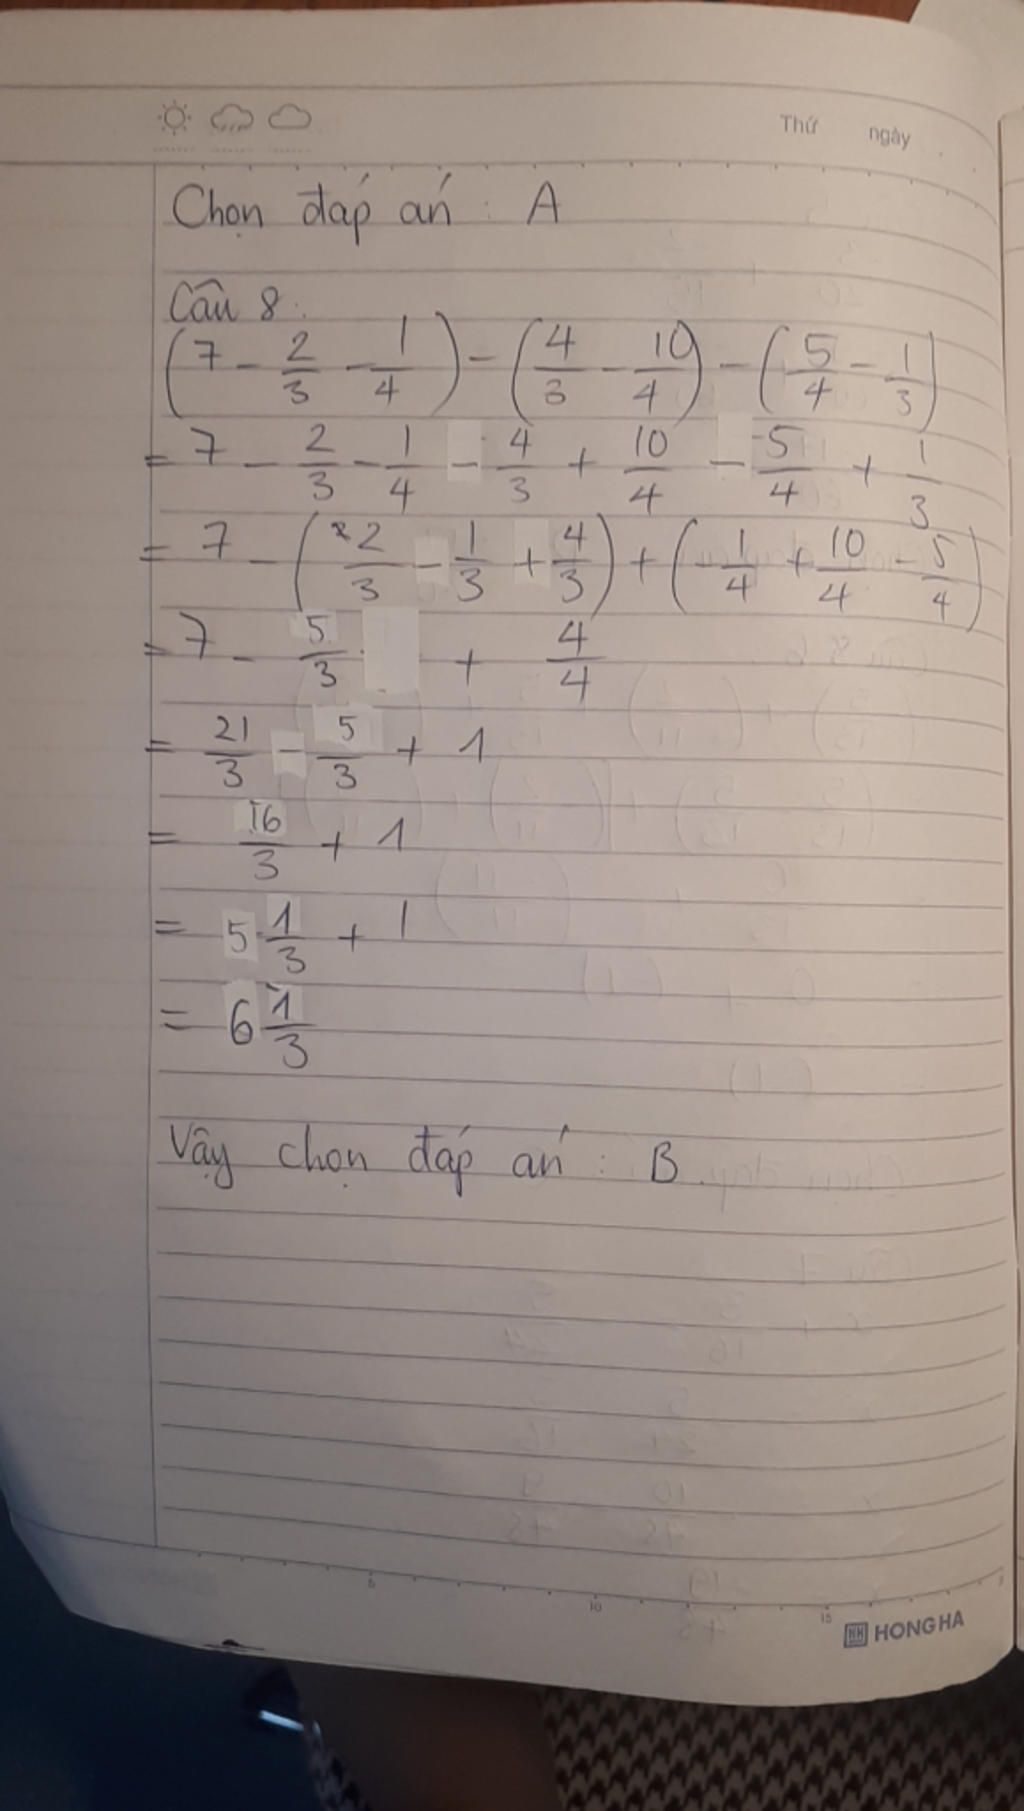 Thứ ngày
Chọn đáp án : A
Câu 8:
(7 - 2/3 - 1/4) - (4/3 - 10/4) - (5/4 - 1/3)
= 7 - 2/3 - 1/4 - 4/3 + 10/4 - 5/4 + 1/3
= 7 - (2/3 - 1/3 + 4/3) + (-1/4 + 10/4 - 5/4)
= 7 - 5/3 + 4/4
= 21/3 - 5/3 + 1
= 16/3 + 1
= 5 1/3 + 1
= 6 1/3
Vậy chọn đáp án : B
5 10 15
HH HONG HA